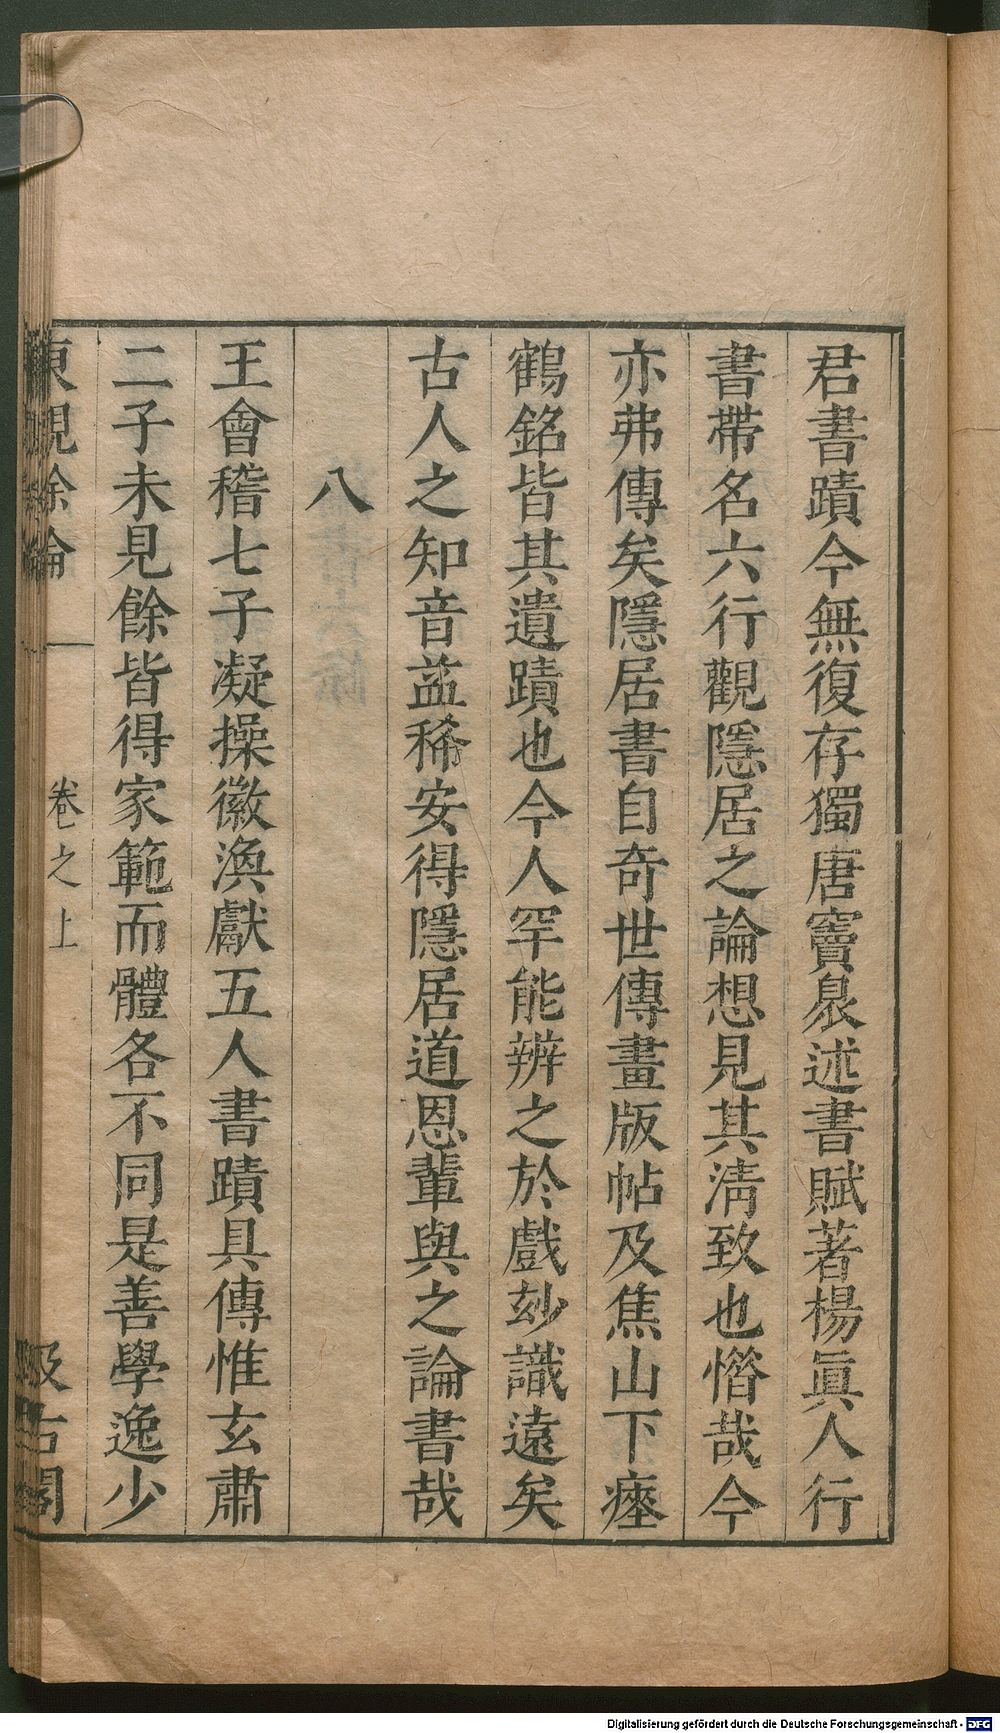 君書蹟今無復存獨唐竇臮述書賦著楊眞人行
書帶名六行觀隱居之論想見其淸致也憯哉今
亦弗傳矣隱居書自奇世傳畫版帖及焦山下瘞
鶴銘皆其遺蹟也今人罕能辨之於戲玅識遠矣
古人之知音益稀安得隱居道恩輩與之論書哉
八
王會稽七子凝操徽渙獻五人書蹟具傳惟玄肅
二子未見餘皆得家範而體各不同是善學逸少
東觀餘論 卷之上 汲古閣
Digitalisierung gefördert durch die Deutsche Forschungsgemeinschaft - DFG